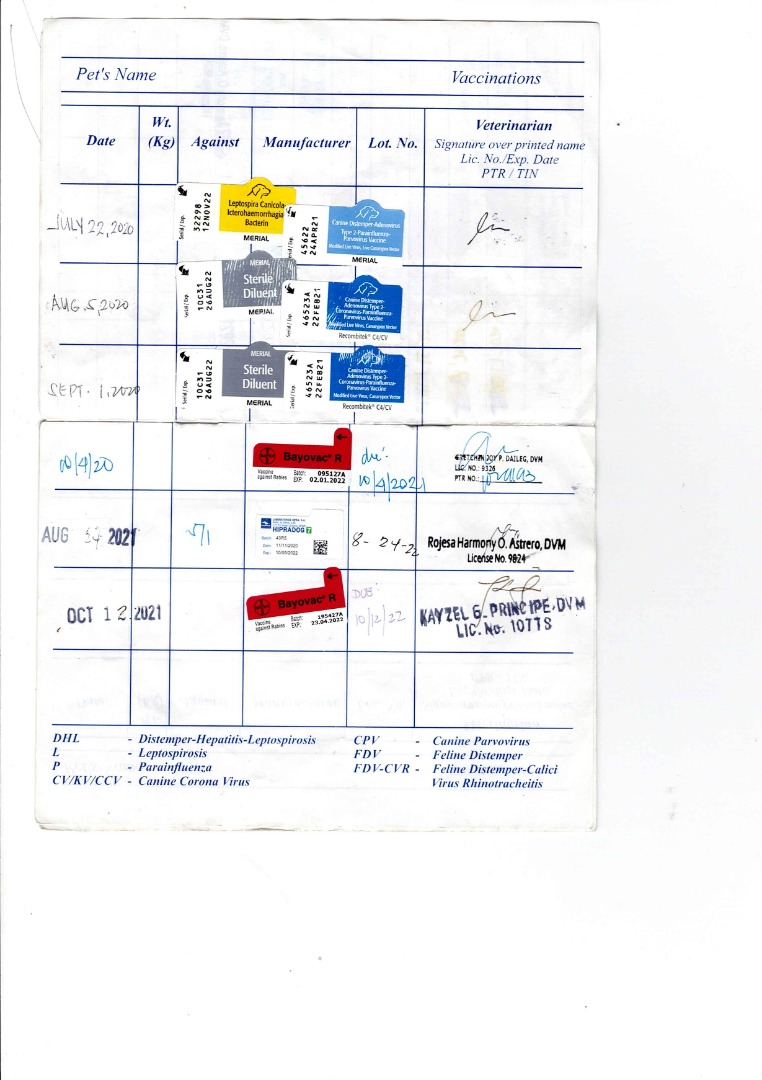 Pet's Name Vaccinations
Date Wt. (Kg) Against Manufacturer Lot. No. Veterinarian
Signature over printed name
Lic. No./Exp. Date
PTR / TIN
JULY 22, 2020
Serial / Exp.
32298
12NOV22
Leptospira Canicola-
Icterohaemorrhagiae
Bacterin
MERIAL
45622
24APR21
Canine Distemper-Adenovirus
Type 2-Parainfluenza-
Parvovirus Vaccine
Modified Live Virus, Live Canarypox Vector
MERIAL
AUG. 5, 2020
Serial / Exp.
10C31
26AUG22
MERIAL
Sterile
Diluent
MERIAL
Serial / Exp.
46523A
22FEB21
Canine Distemper-
Adenovirus Type 2-
Coronavirus-Parainfluenza-
Parvovirus Vaccine
Modified Live Virus, Canarypox Vector
Recombitek® C4/CV
SEPT. 1, 2020
Serial / Exp.
10C31
26AUG22
MERIAL
Sterile
Diluent
MERIAL
Serial / Exp.
46523A
22FEB21
Canine Distemper-
Adenovirus Type 2-
Coronavirus-Parainfluenza-
Parvovirus Vaccine
Modified Live Virus, Canarypox Vector
Recombitek® C4/CV
10/4/20
Bayovac® R
Vaccine against Rabies
Batch: 095127A
EXP: 02.01.2022
due:
10/4/2021
GRETCHEN JOY P. DAILEG, DVM
LIC. NO.: 9326
PTR NO.:
AUG 2021
5/1
HIPRADOG 7
8-24-22
Rojesa Harmony O. Astrero, DVM
License No. 9824
OCT 12 2021
Bayovac® R
Vaccine against Rabies
Batch: 195427A
EXP: 23.04.2022
DUE:
10/12/22
KAYZEL G. PRINCIPE, DVM
LIC. No. 10778
DHL - Distemper-Hepatitis-Leptospirosis
L - Leptospirosis
P - Parainfluenza
CV/KV/CCV - Canine Corona Virus
CPV - Canine Parvovirus
FDV - Feline Distemper
FDV-CVR - Feline Distemper-Calici
Virus Rhinotracheitis